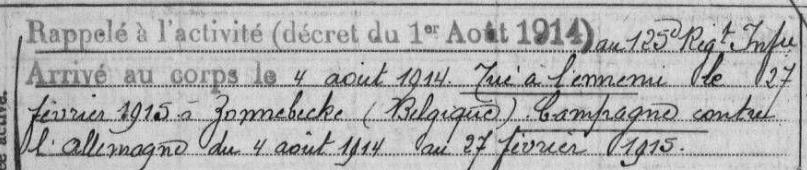 Rappelé à l'activité (décret du 1er Août 1914) au 125e Regt Infie
Arrivé au corps le 4 août 1914. Tué à l'ennemi le 27
février 1915 à Zonnebecke (Belgique) Campagne contre
l'allemagne du 4 août 1914 au 27 février 1915.